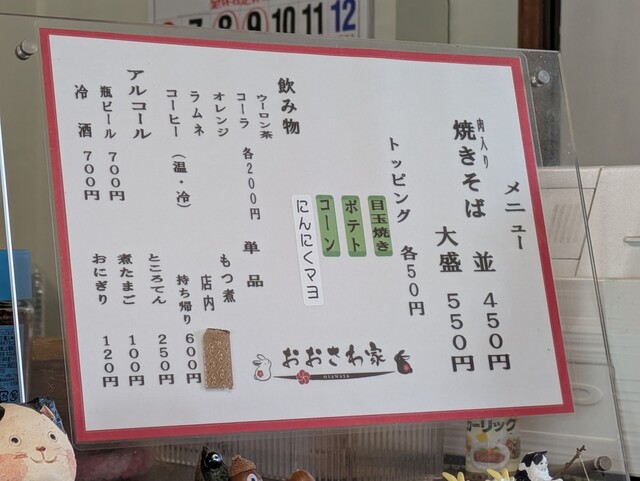 7 8 9 10 11 12
メニュー
肉入り
焼きそば 並 450円
大盛 550円
トッピング 各50円
目玉焼き
ポテト
コーン
にんにくマヨ
飲み物
ウーロン茶
コーラ 各200円
オレンジ
ラムネ
コーヒー（温・冷）
アルコール
瓶ビール 700円
冷酒 700円
単品
もつ煮
店内
持ち帰り 600円
ところてん 250円
煮たまご 100円
おにぎり 120円
おおさわ家
ガーリック